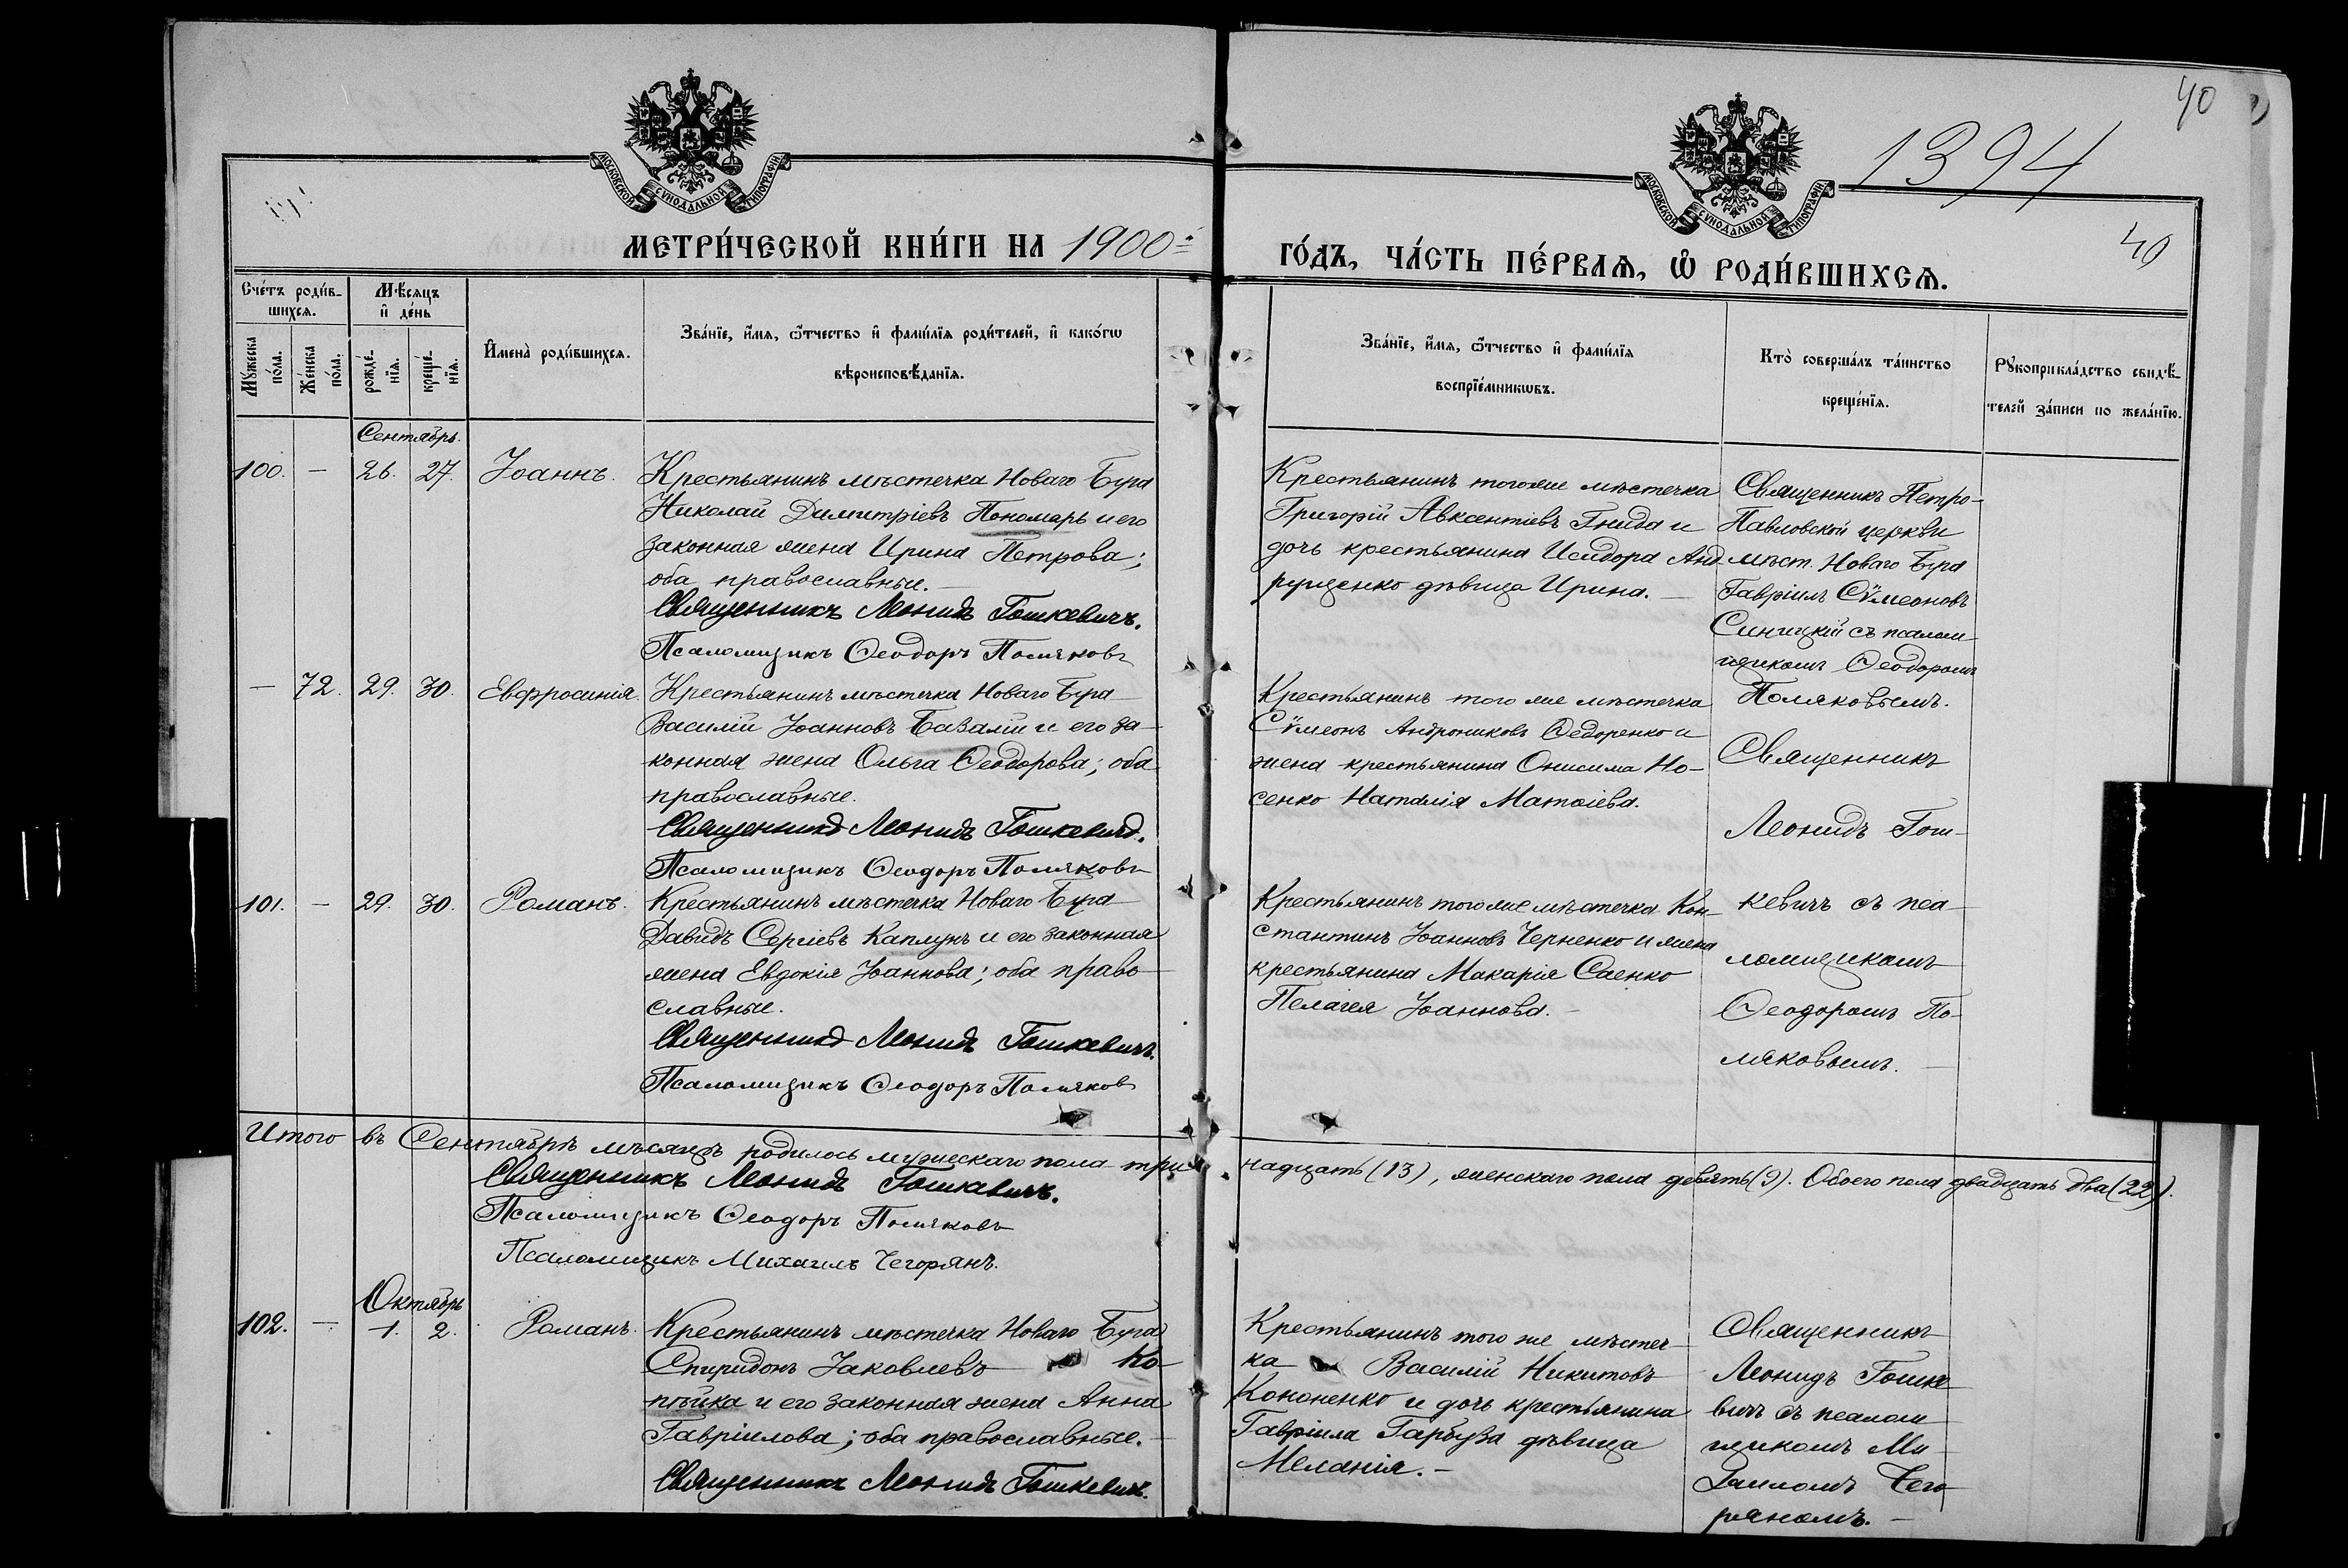 40
1394
40
МОСКОВСКОЙ СУНОДАЛЬНОЙ ТИПОГРАФІИ
МОСКОВСКОЙ СУНОДАЛЬНОЙ ТИПОГРАФІИ
МЕТРИ́ЧЕСКОЙ КНИ́ГИ НА 1900й
ГО́ДЪ, ЧА́СТЬ ПЕ́РВАѦ, Ѽ РОДИ́ВШИХСѦ.
Сче́тъ роди́в-
шихсѧ.
Мѣ́сѧцъ
и҆ де́нь
Мꙋ́жеска по́ла.
Же́нска по́ла.
рожде́-нїѧ.
креще́-нїѧ.
И҆мена̀ роди́вшихсѧ.
Зва́нїе, и҆́мѧ, ѻ҆́тчество и҆ фами́лїѧ роди́телей, и҆ како́гѡ
вѣроисповѣ́данїѧ.
Зва́нїе, и҆́мѧ, ѻ҆́тчество и҆ фами́лїѧ
воспрїе́мникѡвъ.
Кто̀ соверша́лъ та́инство
креще́нїѧ.
Рꙋкоприкла́дство свидѣ́-
телей за́писи по жела́нїю.
Сентябрь.
100. — 26. 27. Іоаннъ.
Крестьянинъ мѣстечка Новаго Буга
Николай Димитріевъ Пономарь и его
законная жена Ирина Петрова;
оба православные.—
Священникъ Леонидъ Гошкевичъ.
Псаломщикъ Ѳеодоръ Поляковъ
Крестьянинъ тогоже мѣстечка
Григорій Авксентіевъ Гнида и
дочь крестьянина Исидора Анд-
рущенко дѣвица Ирина.—
Священникъ Петро-
Павловской церкви
мѣст. Новаго Буга
Гавріилъ Сѵмеоновъ
Синицкій съ псалом-
щикомъ Ѳеодоромъ
Поляковымъ.
— 72. 29. 30. Евфросинія.
Крестьянинъ мѣстечка Новаго Буга
Василій Іоанновъ Базалій и его за-
конная жена Ольга Ѳеодорова; оба
православные.
Священникъ Леонидъ Гошкевичъ.
Псаломщикъ Ѳеодоръ Поляковъ
Крестьянинъ того же мѣстечка
Сѵмеонъ Андрониковъ Ѳедоренко и
жена крестьянина Онисима Но-
сенко Наталія Матѳіева.
Священникъ
Леонидъ Гош-
кевичъ съ пса-
ломщикомъ
Ѳеодоромъ По-
ляковымъ.—
101. — 29. 30. Романъ.
Крестьянинъ мѣстечка Новаго Буга
Давидъ Сергіевъ Каплунъ и его законная
жена Евдокія Іоаннова; оба право-
славные.
Священникъ Леонидъ Гошкевичъ.
Псаломщикъ Ѳеодоръ Поляковъ
Крестьянинъ тогоже мѣстечка Кон-
стантинъ Іоанновъ Черненко и жена
крестьянина Макарія Саенко
Пелагея Іоаннова.—
Итого въ Сентябрѣ мѣсяцѣ родилось мужескаго пола три-
надцать (13), женскаго пола девять (9). Обоего пола двадцать два (22).
Священникъ Леонидъ Гошкевичъ.
Псаломщикъ Ѳеодоръ Поляковъ
Псаломщикъ Михаилъ Чегорянъ.
Октябрь
102. — 1. 2. Романъ.
Крестьянинъ мѣстечка Новаго Буга
Спиридонъ Іаковлевъ Ко-
пѣйка и его законная жена Анна
Гавріилова; оба православные.—
Священникъ Леонидъ Гошкевичъ.
Крестьянинъ того же мѣстеч-
ка Василій Никитовъ
Кононенко и дочь крестьянина
Гавріила Гарбуза дѣвица
Меланія.—
Священникъ
Леонидъ Гошке
вичъ съ псалом
щикомъ Ми-
хаиломъ Чего
ряномъ.—